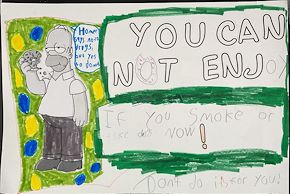 Homer
says no to
drugs,
but yes
to donuts
YOU CAN
NOT ENJOY
If You Smoke or
NOW!
Dont do it for you!